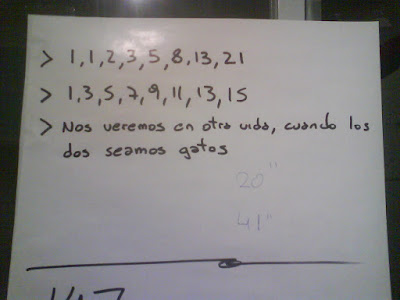 > 1,1,2,3,5,8,13,21
> 1,3,5,7,9,11,13,15
> Nos veremos en otra vida, cuando los
dos seamos gatos
20"
41"